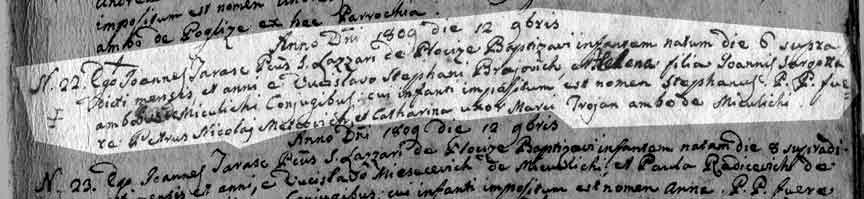 impositum est nomen
ambo de Poglize ex hec Parrochia
Anno Dni 1809 die 12 9bris
N. 22. Ego Joannes Tarasc Pcus S. Lazzari de Plouze Baptizavi infantem natum die 6 supra
dicti mensis et anni, e Vucislavo Stephani Brajovich, et Helena filia Joannis
ambobus Miculichi Conjugibus: cui infanti impositum est nomen Stephanus. P. P. fue
re Petrus Nicolaj et Catharina uxor Marci Trojan ambo de Miculichi
Anno Dni 1809 die 12 9bris
N. 23. Ego Joannes Tarasc Pcus S. Lazzari de Plouze Baptizavi infantem natam die 8 supradi
mensis et anni, e Vucislavo de Miculichi, et Paula Radicevich de
Conjugibus: cui infanti impositum est nomen Anna. P. P. fuere